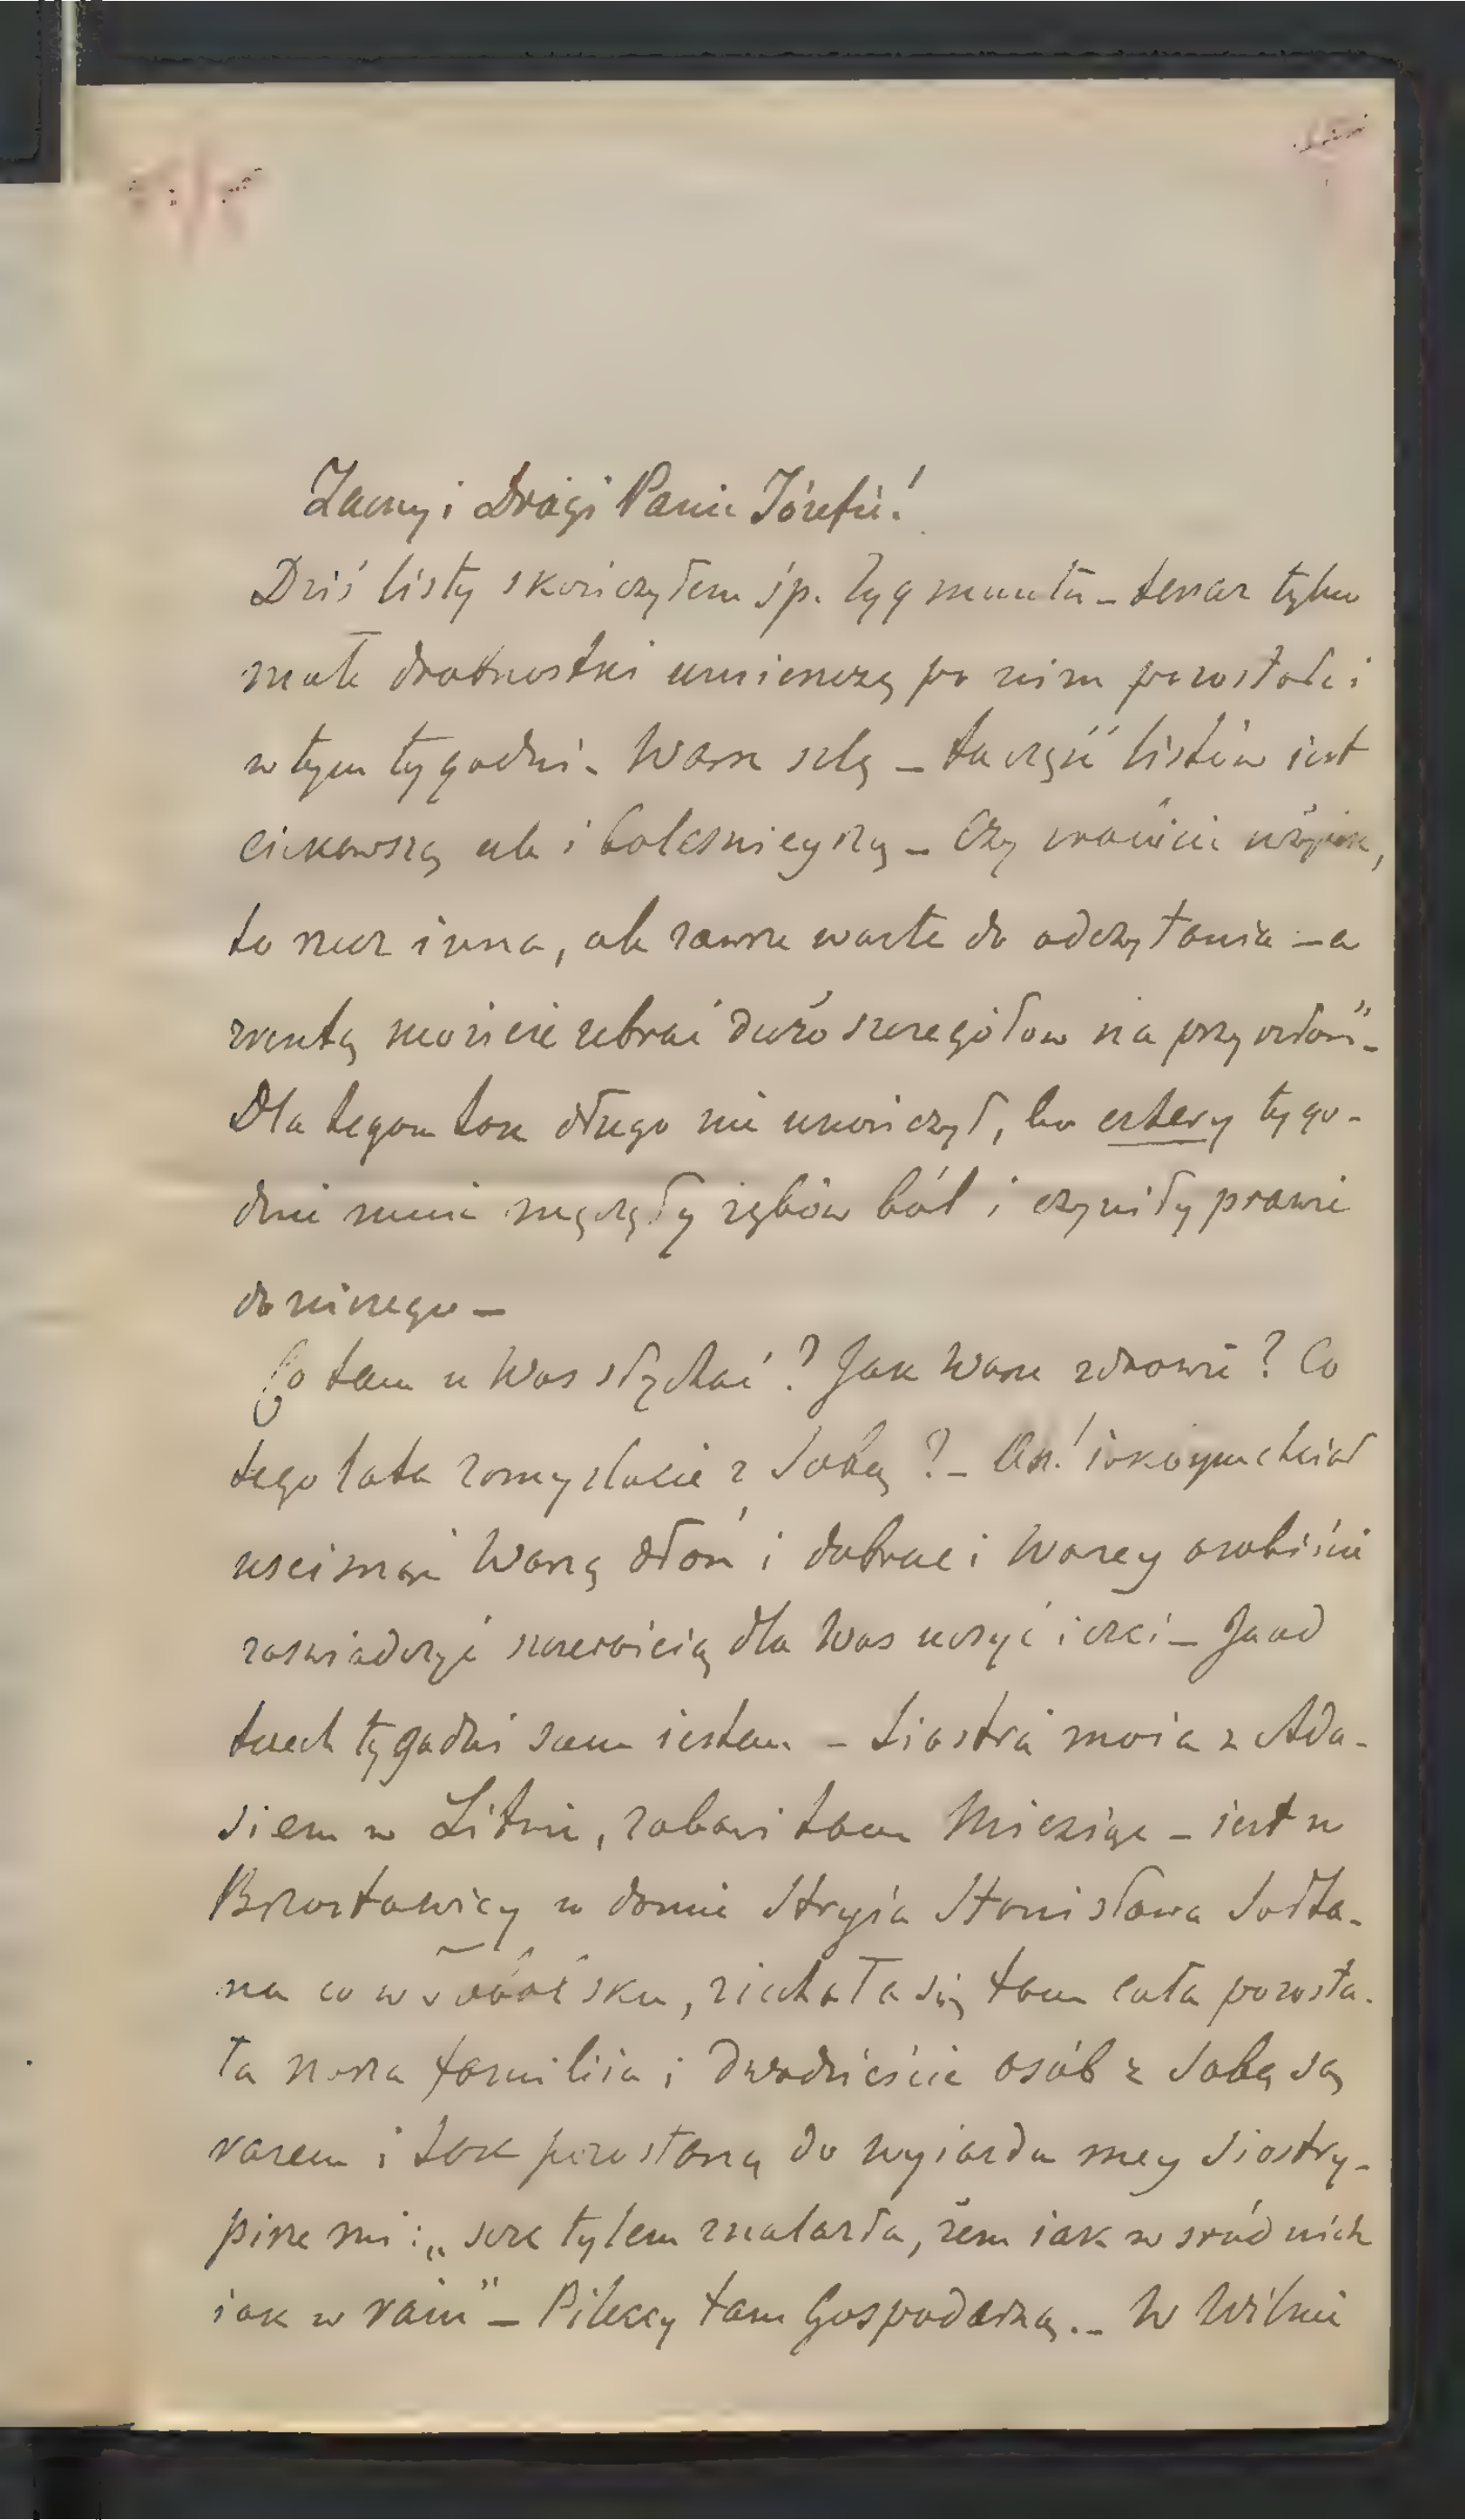 Zacny i Drogi Panie Józefie!
Dziś listy skończyłem śp. Zygmunta – teraz tylko
małe drobnostki umieszczę po nim pozostałe i
w tym tygodni. Wam szlę – ta część listów jest
ciekawszą ale i boleśnieyszą – Czy zrobicie
to rzecz inna, ale zawsze warte do odczytania – a
zresztą możecie zebrać dużo szczegółow na przyszłość –
Dla tegom tak długo nie ukończył, bo cztery tygo-
dnie mnie męczyły zębów ból i czyniły prawie
do niczego –
Co tam u Was słychać? Jak Wasze zdrowie? Co
tego lata zamyślacie z Sobą? – Ach! jakożbym chciał
uscisnąć Waszą dłoń i dobrać i Waszey osobiście
zaswiadczyć szczerość dla Was uczyć i czci – Ja od
trzech tygodni sam iestem – Siostra moia z Ada-
siem w Litwie, zabawi tam Miesiąc – iest w
Brzostowicy w domie Stryia Stanisława Sołta-
na co w sku, ziechała się tam cała pozosta-
ła nasza familiia i dwadzieście osób z Sobą są
razem i tak pozostaną do wyiazdu mey Siostry –
pisze mi: „serc tylem znalazła, żem iak w sród nich
iak w raiu" – Pileccy tam Gospodarzą. – W Wilnie